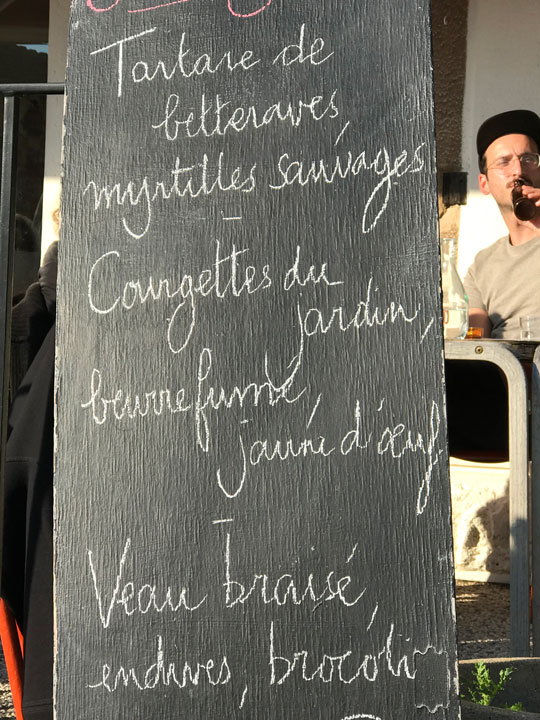 Tartare de
betteraves,
myrtilles sauvages
–
Courgettes du
jardin,
beurre fumé,
jaune d'œuf
–
Veau braisé,
endives, brocoli